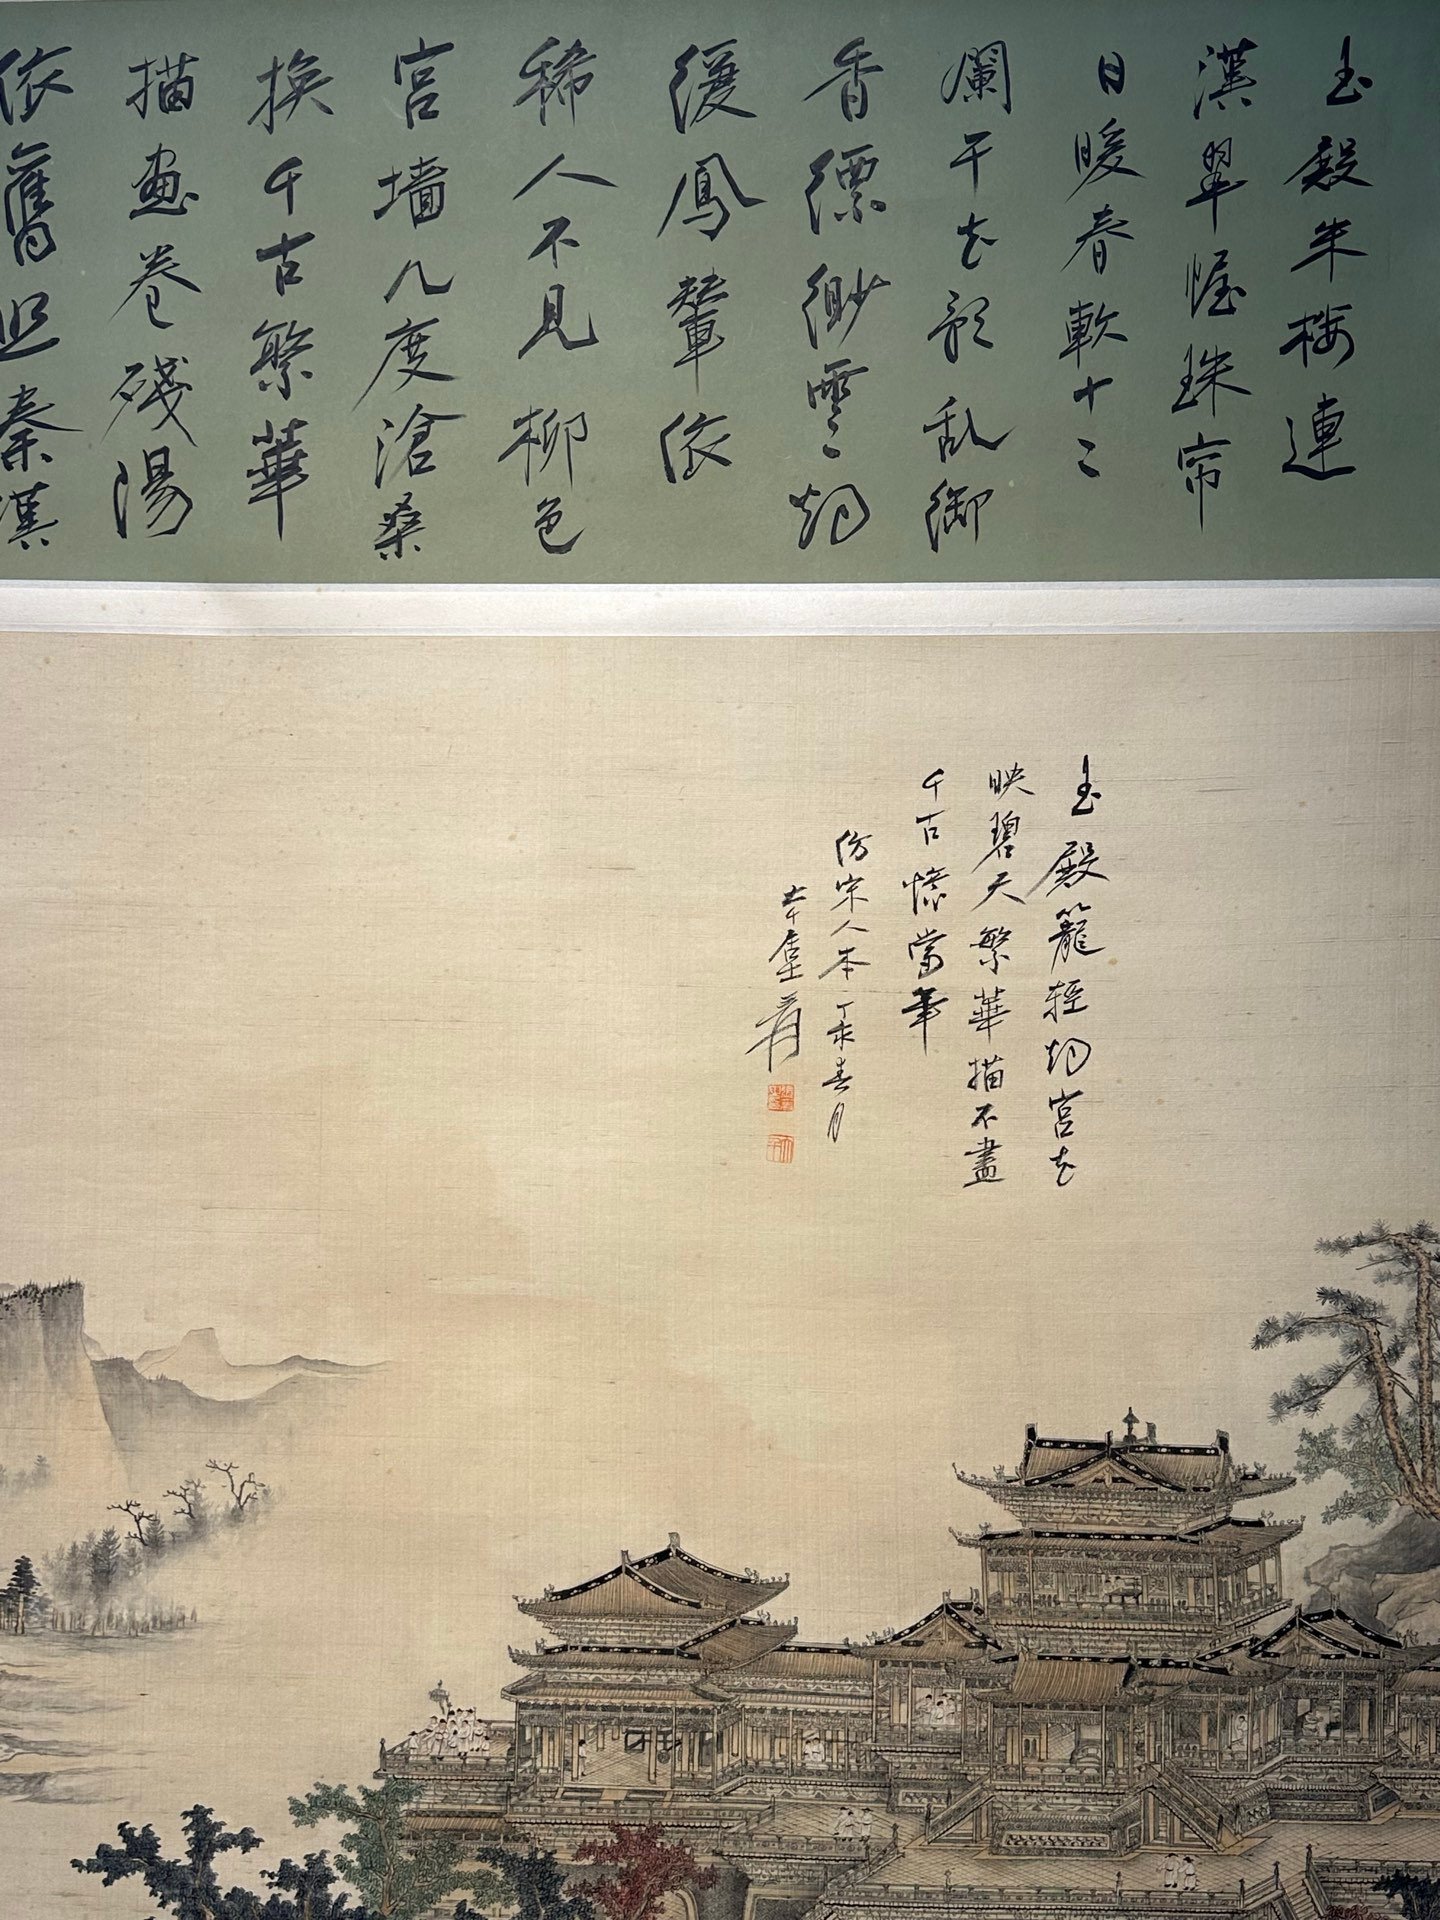 玉殿朱楼連
漢翠幄珠帘
日暖春軟十二
闌干花影乱御
香縹緲雲烟
緩鳳輦依
稀人不見柳色
宮墙几度滄桑
換千古繁華
描畫卷殘陽
依舊照秦漢
玉殿籠輕烟宮花
映碧天繁華描不盡
千古憶當年
仿宋人本丁未春月
大千居士爰